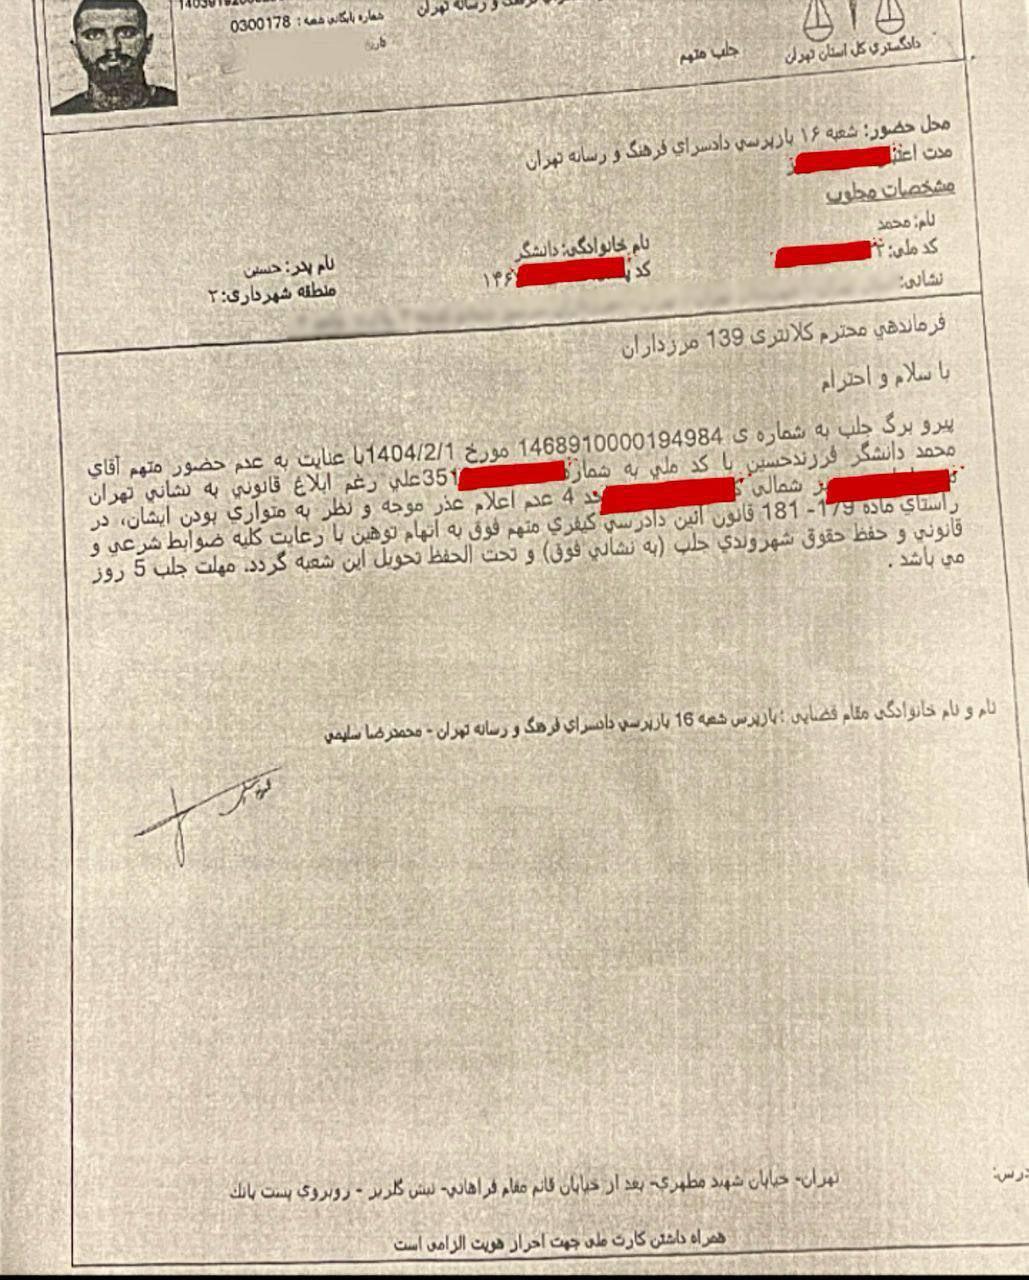 شماره بایگانی شعبه : 0300178
تاریخ
فرهنگ و رسانه تهران
جلب متهم
دادگستری کل استان تهران
محل حضور: شعبه ۱۶ بازپرسي دادسراي فرهنگ و رسانه تهران
مدت
مشخصات مجلوب
نام: محمد
نام خانوادگی: دانشگر
نام پدر: حسین
کد ملی:
کد
۱۴۶
منطقه شهرداری: ۲
نشانی:
فرماندهي محترم کلانتری 139 مرزداران
با سلام و احترام
پیرو برگ جلب به شماره ی 1468910000194984 مورخ 1404/2/1با عنایت به عدم حضور متهم آقاي
محمد دانشگر فرزندحسین با کد ملي به شماره 351علي رغم ابلاغ قانوني به نشاني تهران
شمالی 4 عدم اعلام عذر موجه و نظر به متواري بودن ایشان، در
راستاي ماده 179- 181 قانون آئین دادرسي کیفري متهم فوق به اتهام توهین با رعایت کلیه ضوابط شرعي و
قانوني و حفظ حقوق شهروندي جلب (به نشاني فوق) و تحت الحفظ تحویل این شعبه گردد. مهلت جلب 5 روز
مي باشد .
نام و نام خانوادگی مقام قضایی : بازپرس شعبه 16 بازپرسي دادسراي فرهنگ و رسانه تهران - محمدرضا سلیمي
تهران- خیابان شهید مطهري- بعد از خیابان قائم مقام فراهاني- نبش گلریز - روبروي پست بانك
همراه داشتن کارت ملی جهت احراز هویت الزامی است